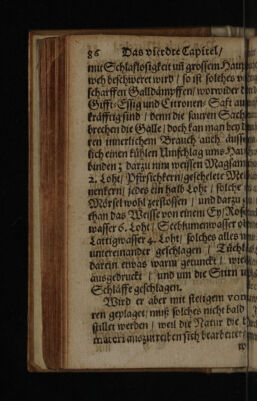 86 Das vierdte Capitel /
mit Schlaflosigkeit uñ grossem Haupt
weh beschweret wird / so ist solches
scharffen Galldämpffen / worwider
Gifft-Essig und Citronen-Safft
kräfftig sind / denn die sauren Sach
brechen die Galle / doch kan man bey
ren innerlichem Brauch auch
lich einen kühlen Umschlag ums Hau
binden ; darzu nim weissen Magsam
2. Loht / Pfirsichkern / geschelete
nenkern / jedes ein halb Loht / solche
Mörsel wohl zerstossen / und darzu
than das Weisse von einem Ey / Rose
wasser 6. Loht / Seeblumenwasser
Lattigwasser 4. Loht / solches alles
untereinander geschlagen / Tüchl
darein etwas warm getunckt /
ausgedruckt / und um die Stirn
Schläffe geschlagen.
Wird er aber mit stetigem
ren geplaget / muß solches nicht bald
stillet werden / weil die Natur die
materi auszutreiben sich bearbeitet